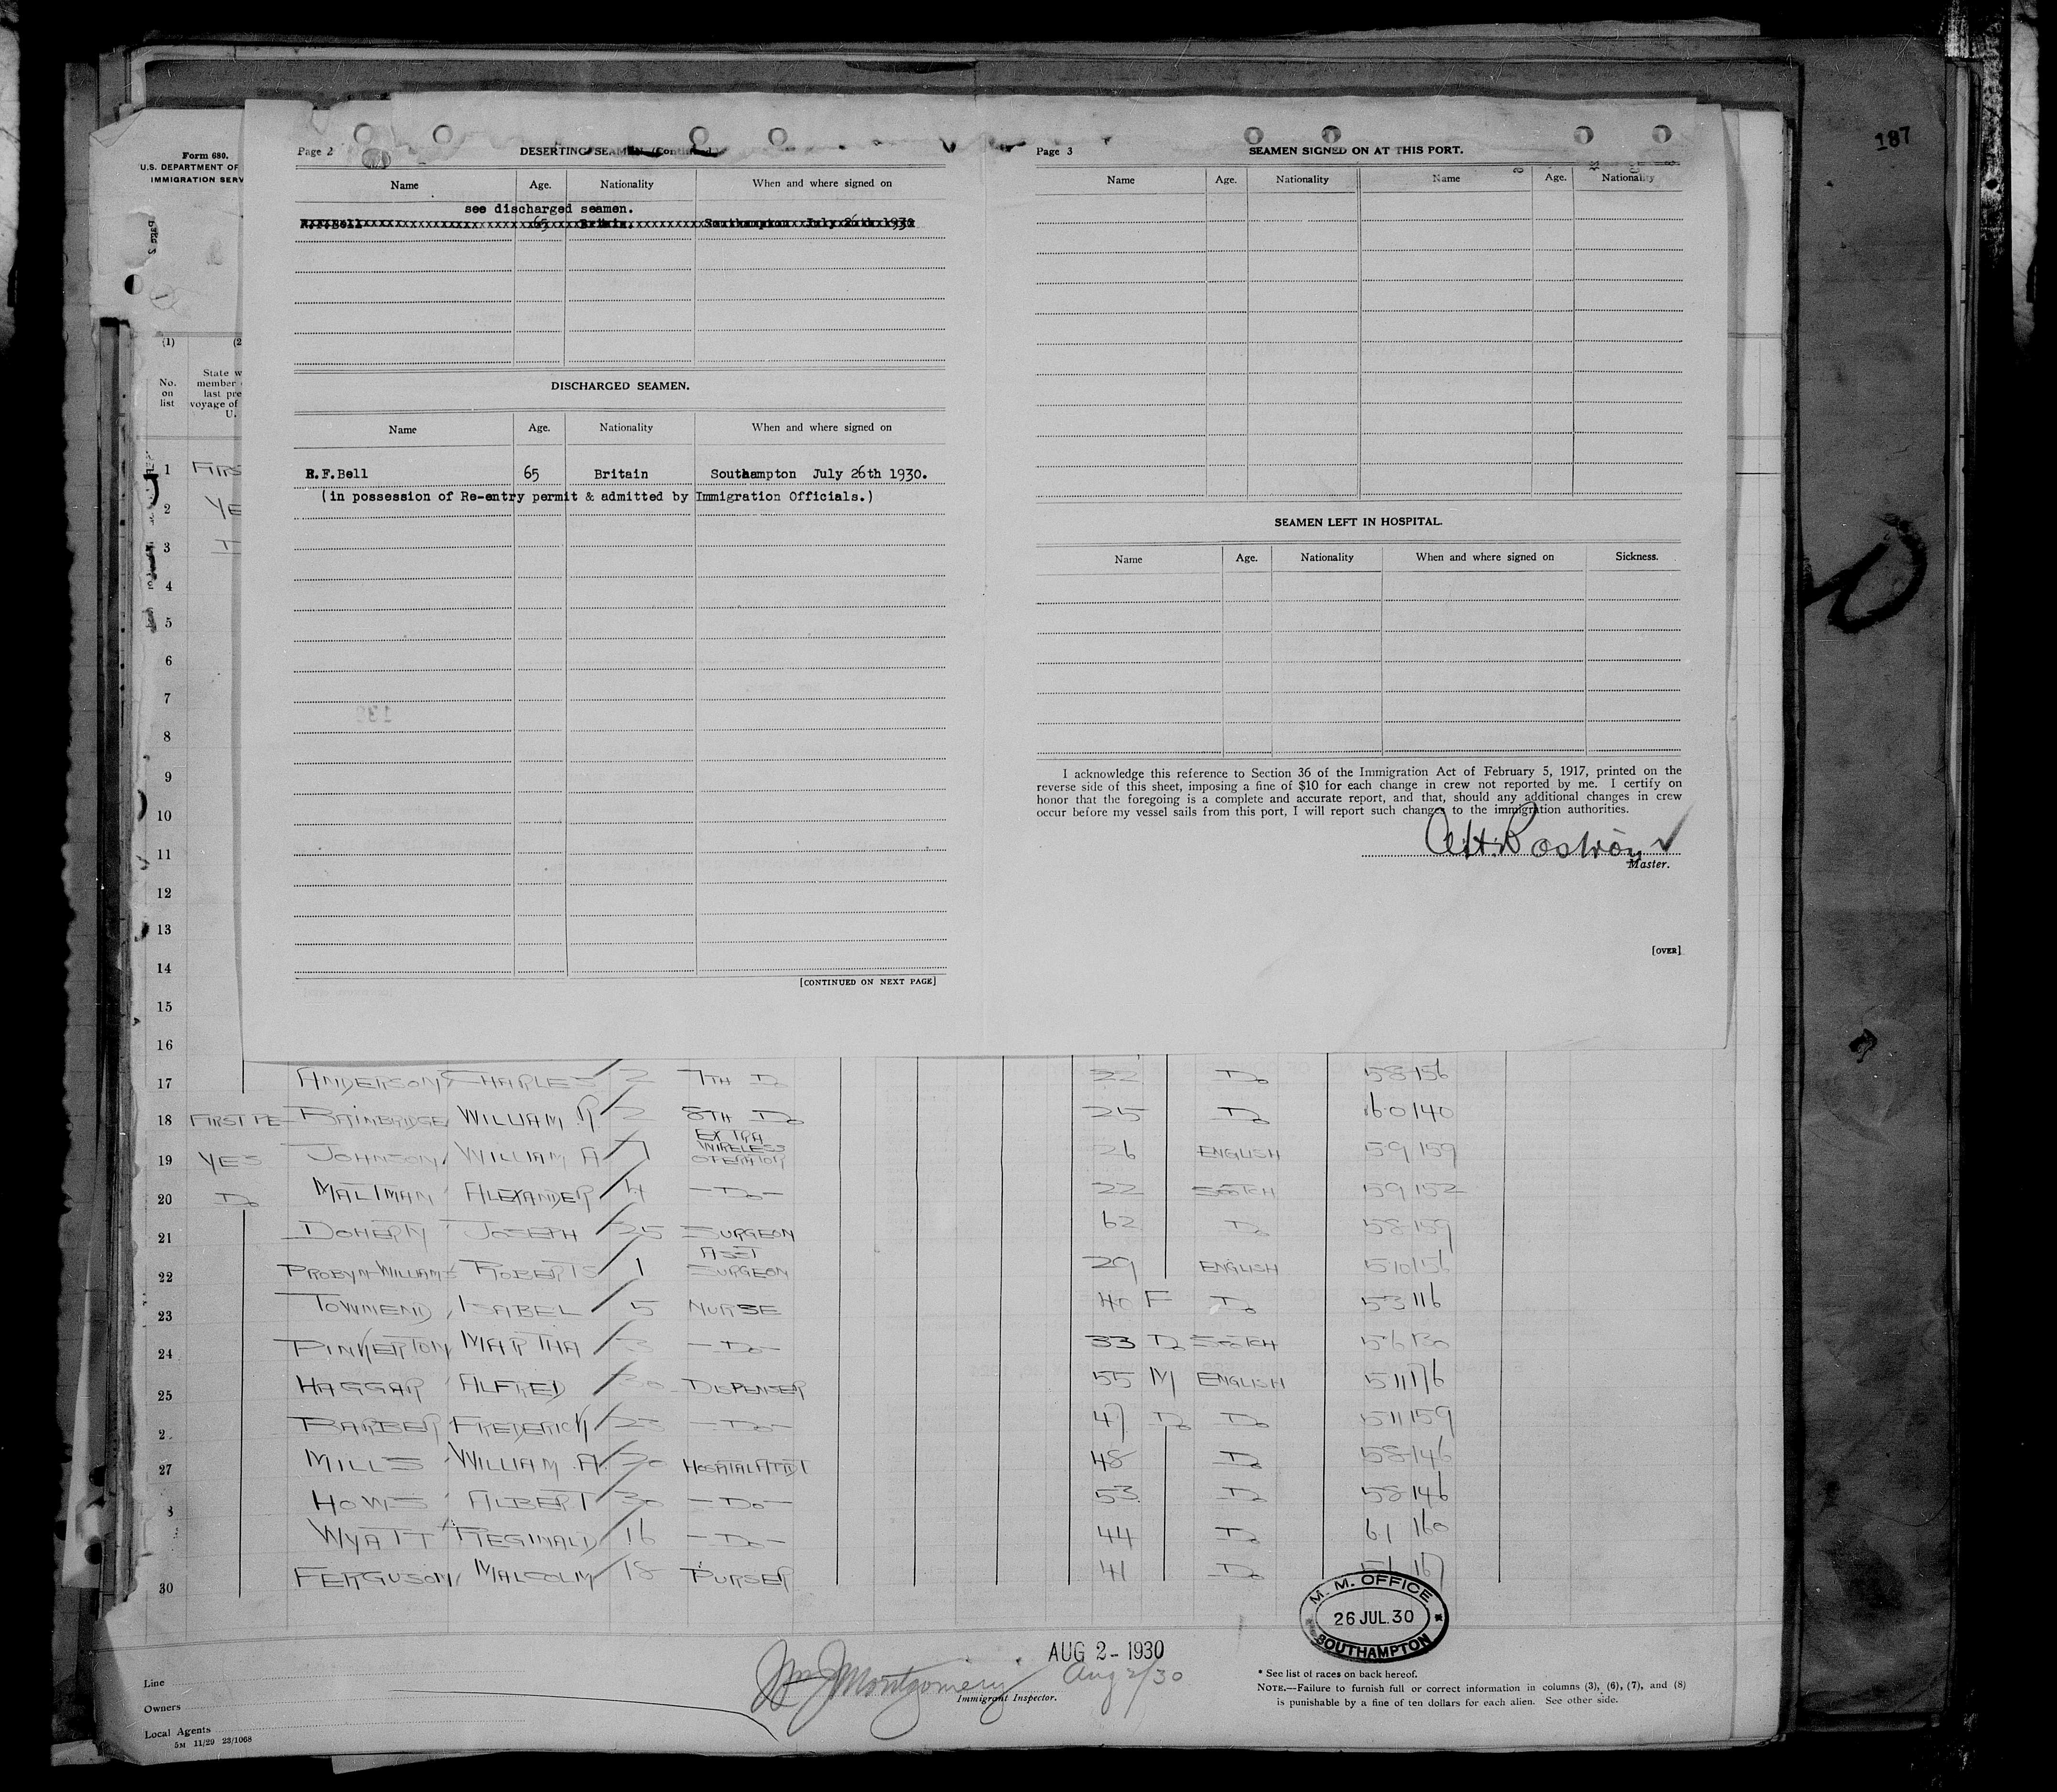 187
Form 680.
U.S. DEPARTMENT OF
IMMIGRATION SERV
Page 2
DESERTING SEAMEN. (Continued.)
Name Age. Nationality When and where signed on
see discharged seamen.
R.F.Bell 65 Britain. Southampton July 26th 1930
DISCHARGED SEAMEN.
Name Age. Nationality When and where signed on
R.F.Bell 65 Britain Southampton July 26th 1930.
(in possession of Re-entry permit & admitted by Immigration Officials.)
[CONTINUED ON NEXT PAGE]
Page 3
SEAMEN SIGNED ON AT THIS PORT.
Name Age. Nationality Name Age. Nationality
SEAMEN LEFT IN HOSPITAL.
Name Age. Nationality When and where signed on Sickness.
I acknowledge this reference to Section 36 of the Immigration Act of February 5, 1917, printed on the
reverse side of this sheet, imposing a fine of $10 for each change in crew not reported by me. I certify on
honor that the foregoing is a complete and accurate report, and that, should any additional changes in crew
occur before my vessel sails from this port, I will report such changes to the immigration authorities.
A.H. Rostron
Master.
[OVER]
(1) (2
No. on list
State w
member
last pre
voyage of
U.
1 FIRS
2 YE
3 D
4
5
6
7
8
9
10
11
12
13
14
15
16
17 ANDERSON CHARLES 2 7TH Do 22 Do 58 156
18 FIRST PE BAINBRIDGE WILLIAM R 2 8TH Do 25 Do 60 140
19 YES JOHNSON WILLIAM A 7 EXTRA WIRELESS OPERATOR 26 ENGLISH 59 159
20 Do MALTMAN ALEXANDER 4 -Do- 22 SCOTCH 59 152
21 DOHERTY JOSEPH 25 SURGEON 62 Do 58 159
22 PROBYN-WILLIAMS ROBERT S 1 ASST SURGEON 29 ENGLISH 510 156
23 TOWNEND ISABEL 5 NURSE 40 F Do 53 116
24 PINKERTON MARTHA 3 -Do- 33 Do SCOTCH 56 130
25 HAGGAR ALFRED 30 DISPENSER 55 M ENGLISH 511 176
2 BARBER FREDERICK 23 -Do- 47 Do Do 511 159
27 MILLS WILLIAM A. 30 HOSPITAL ATTDT 48 Do 58 146
8 HOWS ALBERT 30 -Do- 53 Do 58 146
WYATT REGINALD 16 -Do- 44 Do 61 160
30 FERGUSON MALCOLM 18 PURSER 41 Do 167
M. M. OFFICE
26 JUL. 30
SOUTHAMPTON
AUG 2 - 1930
Wm J Montgomery Aug 2/30
Immigrant Inspector.
Line
Owners
Local Agents
5M 11/29 23/1068
* See list of races on back hereof.
NOTE.—Failure to furnish full or correct information in columns (3), (6), (7), and (8)
is punishable by a fine of ten dollars for each alien. See other side.